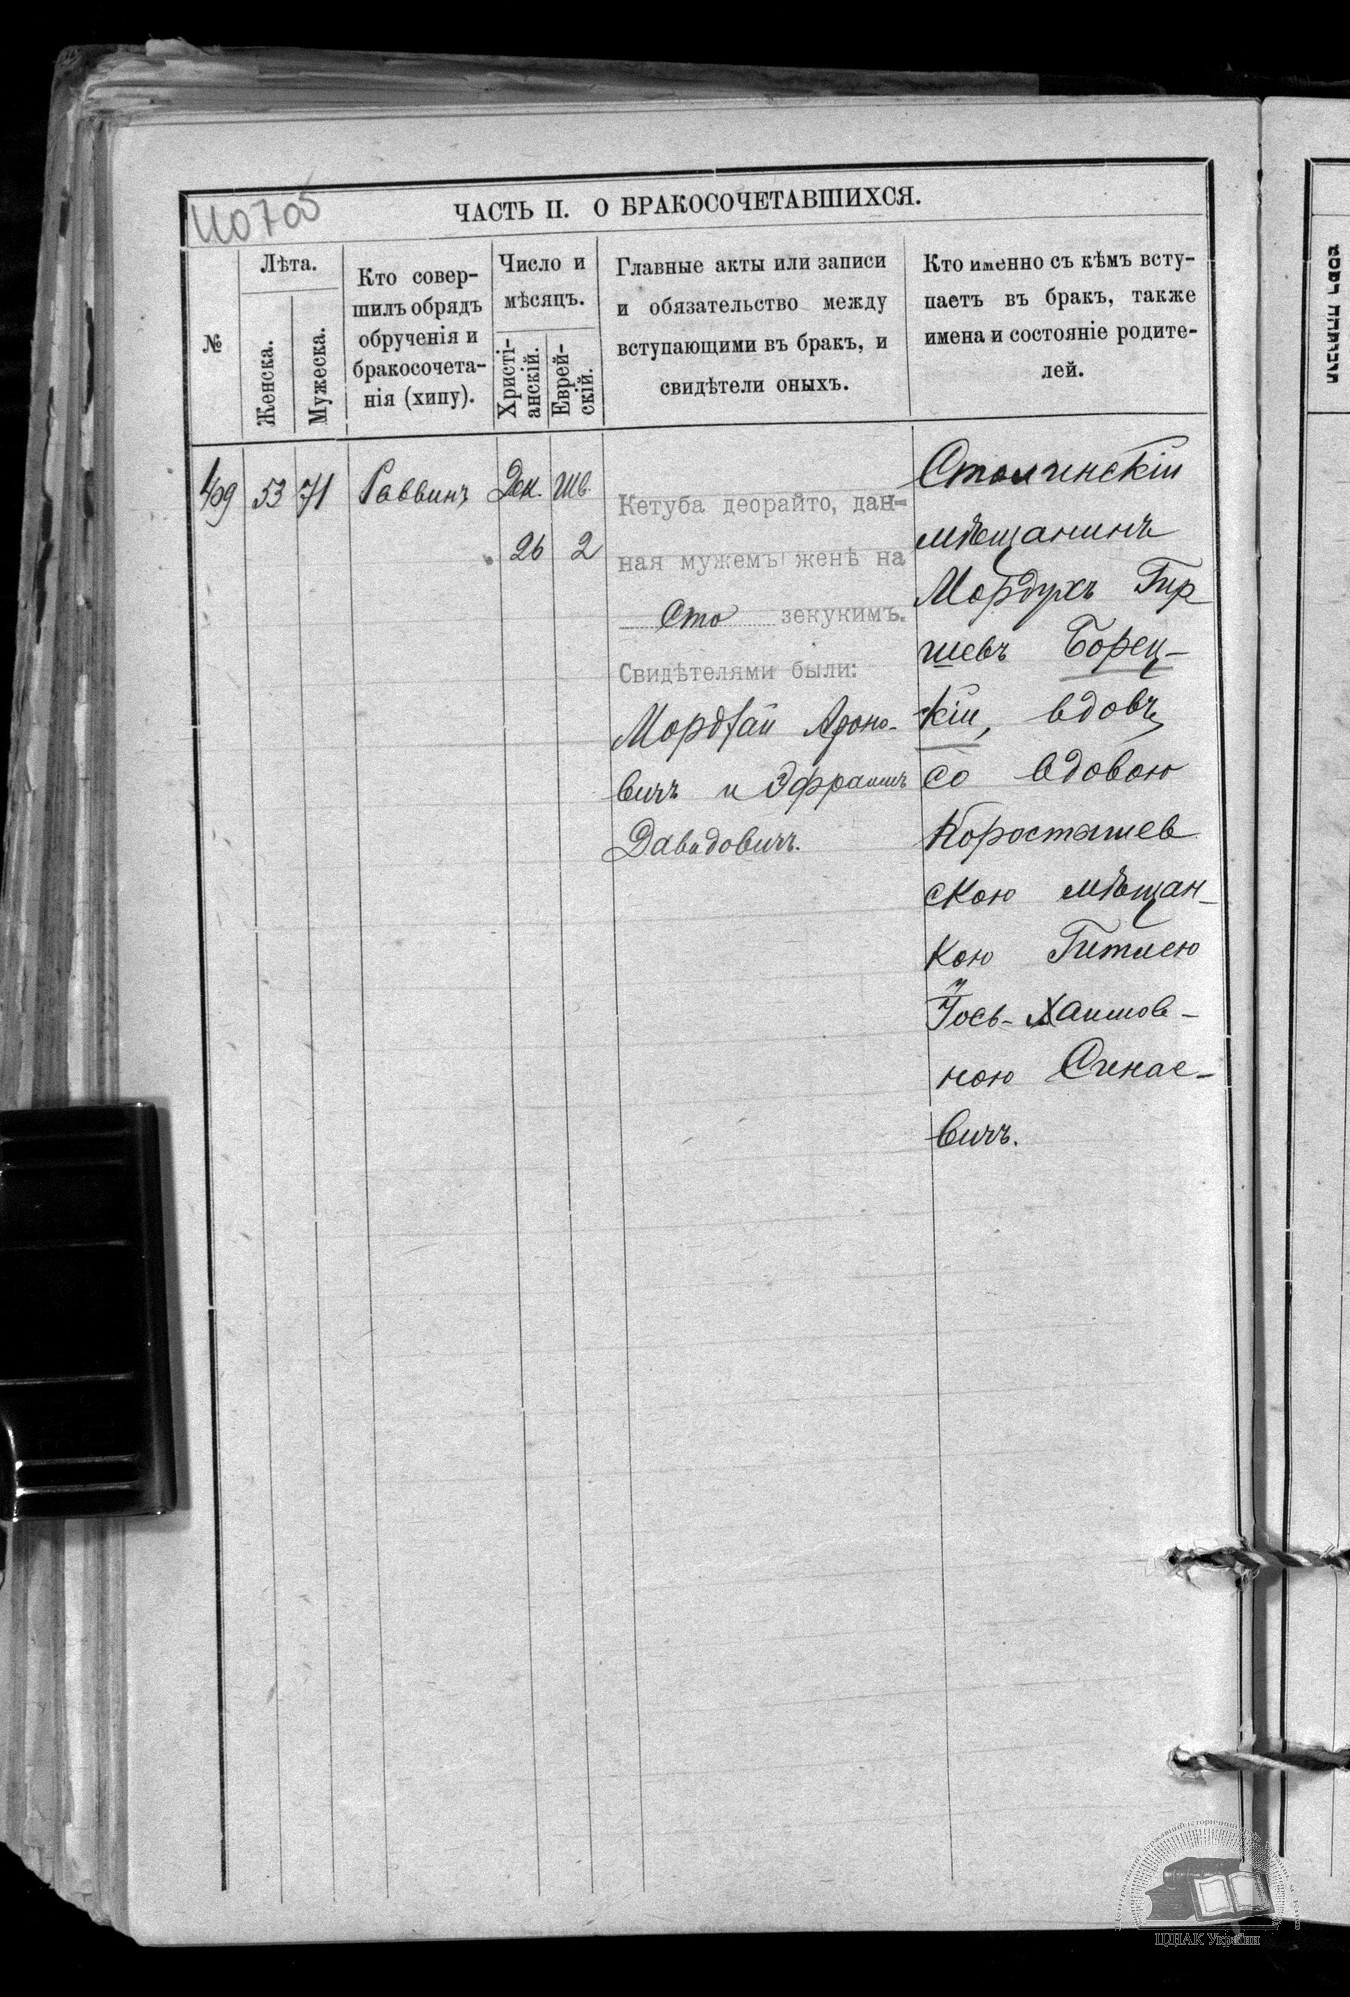 ЧАСТЬ II. О БРАКОСОЧЕТАВШИХСЯ.
№
Лѣта.
Женска.
Мужеска.
Кто совер-
шилъ обрядъ
обрученія и
бракосочета-
нія (хипу).
Число и
мѣсяцъ.
Христі-
анскій.
Еврей-
скій.
Главные акты или записи
и обязательство между
вступающими въ бракъ, и
свидѣтели оныхъ.
Кто именно съ кѣмъ всту-
паетъ въ бракъ, также
имена и состояніе родите-
лей.
409
53
71
Раввинъ
Дек.
26
Шв.
2
Кетуба деорайто, дан=
ная мужемъ женѣ на
Сто зекукимъ.
Свидѣтелями были:
Мордхай Ароно-
вичъ и Эфраимъ
Давидовичъ.
Столинскій
мѣщанинъ
Мордухъ Гир
шевъ Борец-
кій, вдовъ,
со вдовою
Коростышев
скою мѣщан-
кою Гитлею
Іось-Хаимов-
ною Синае-
вичъ.
ЦДІАК України